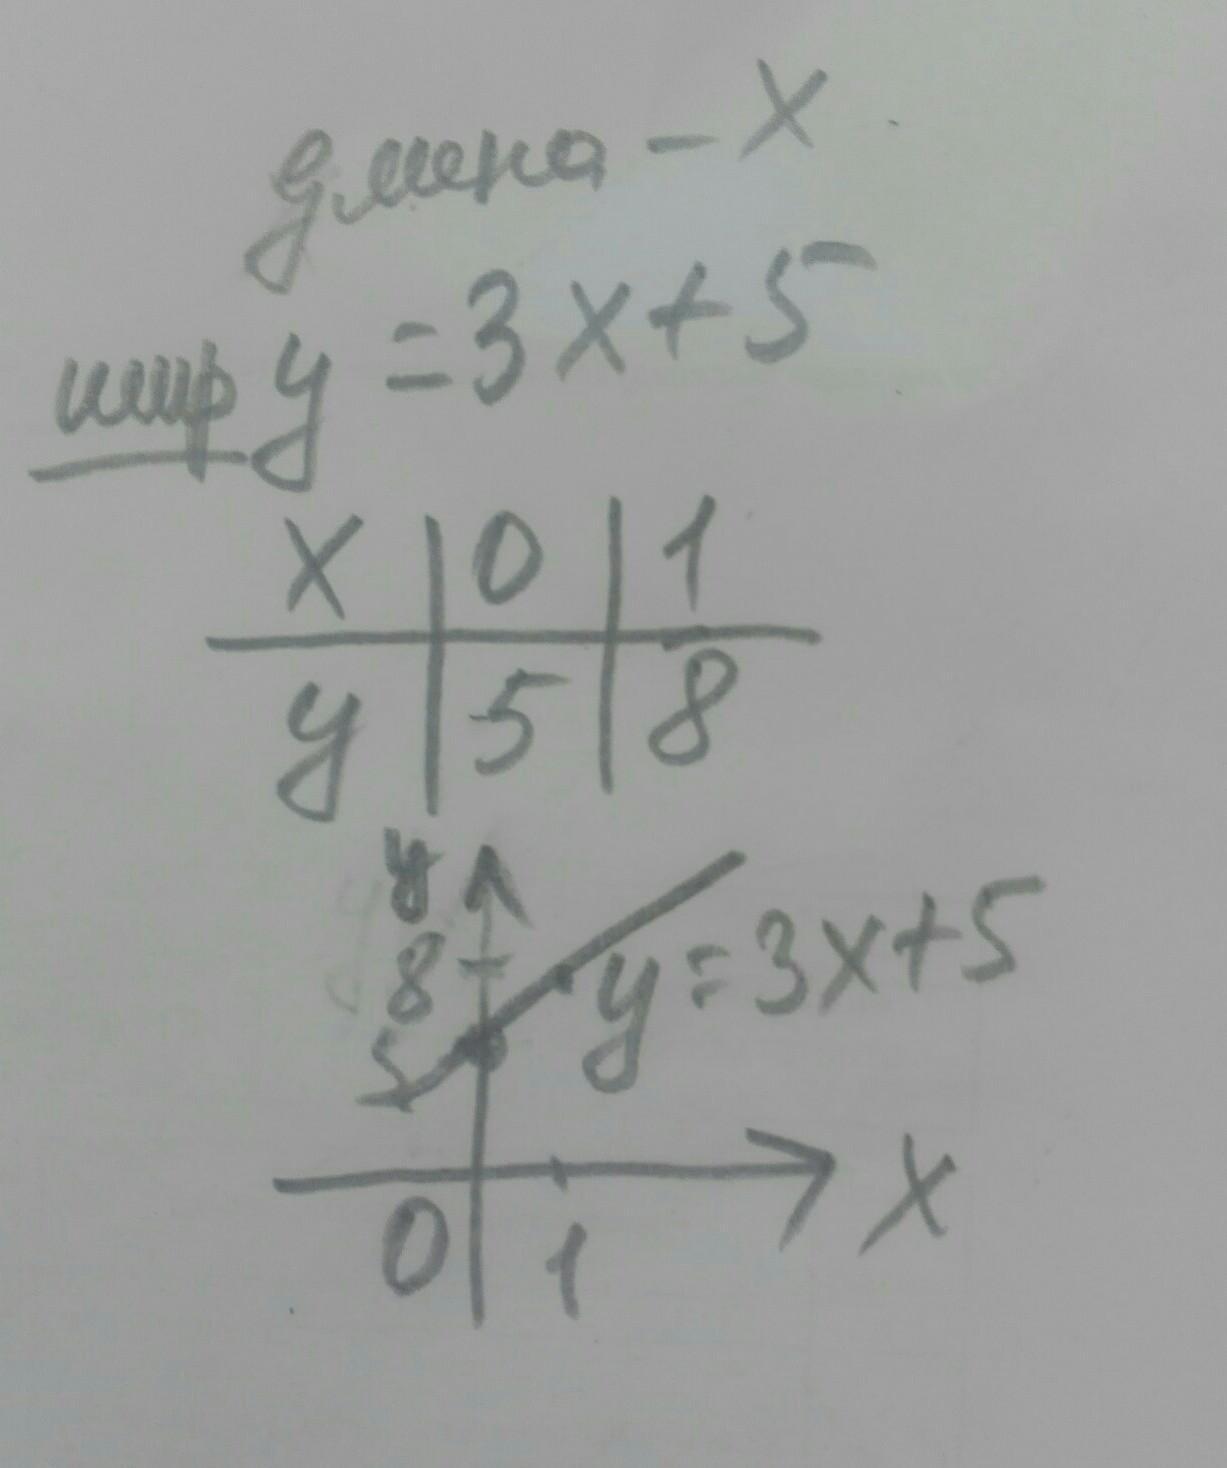 длина - x
шир y = 3x+5
x | 0 | 1
y | 5 | 8
y
8
y = 3x+5
5
x
0 1